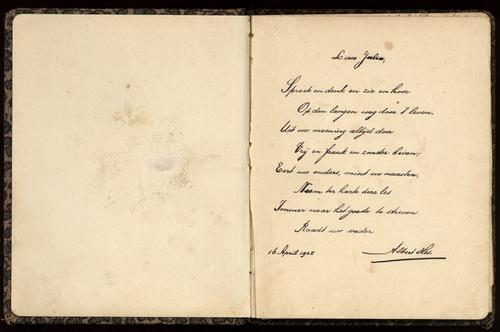 Lieve Julia,
Spreek en denk en zie en hoor
Op den langen weg door 't leven,
Uit uw meening altijd door
Vrij en frank en zonder beven;
Eert uw ouders, mint uw naasten,
Neem ter harte deze les
Immer naar het goede te streven
Raadt uw vader
16 April 1925 Albert Hes.